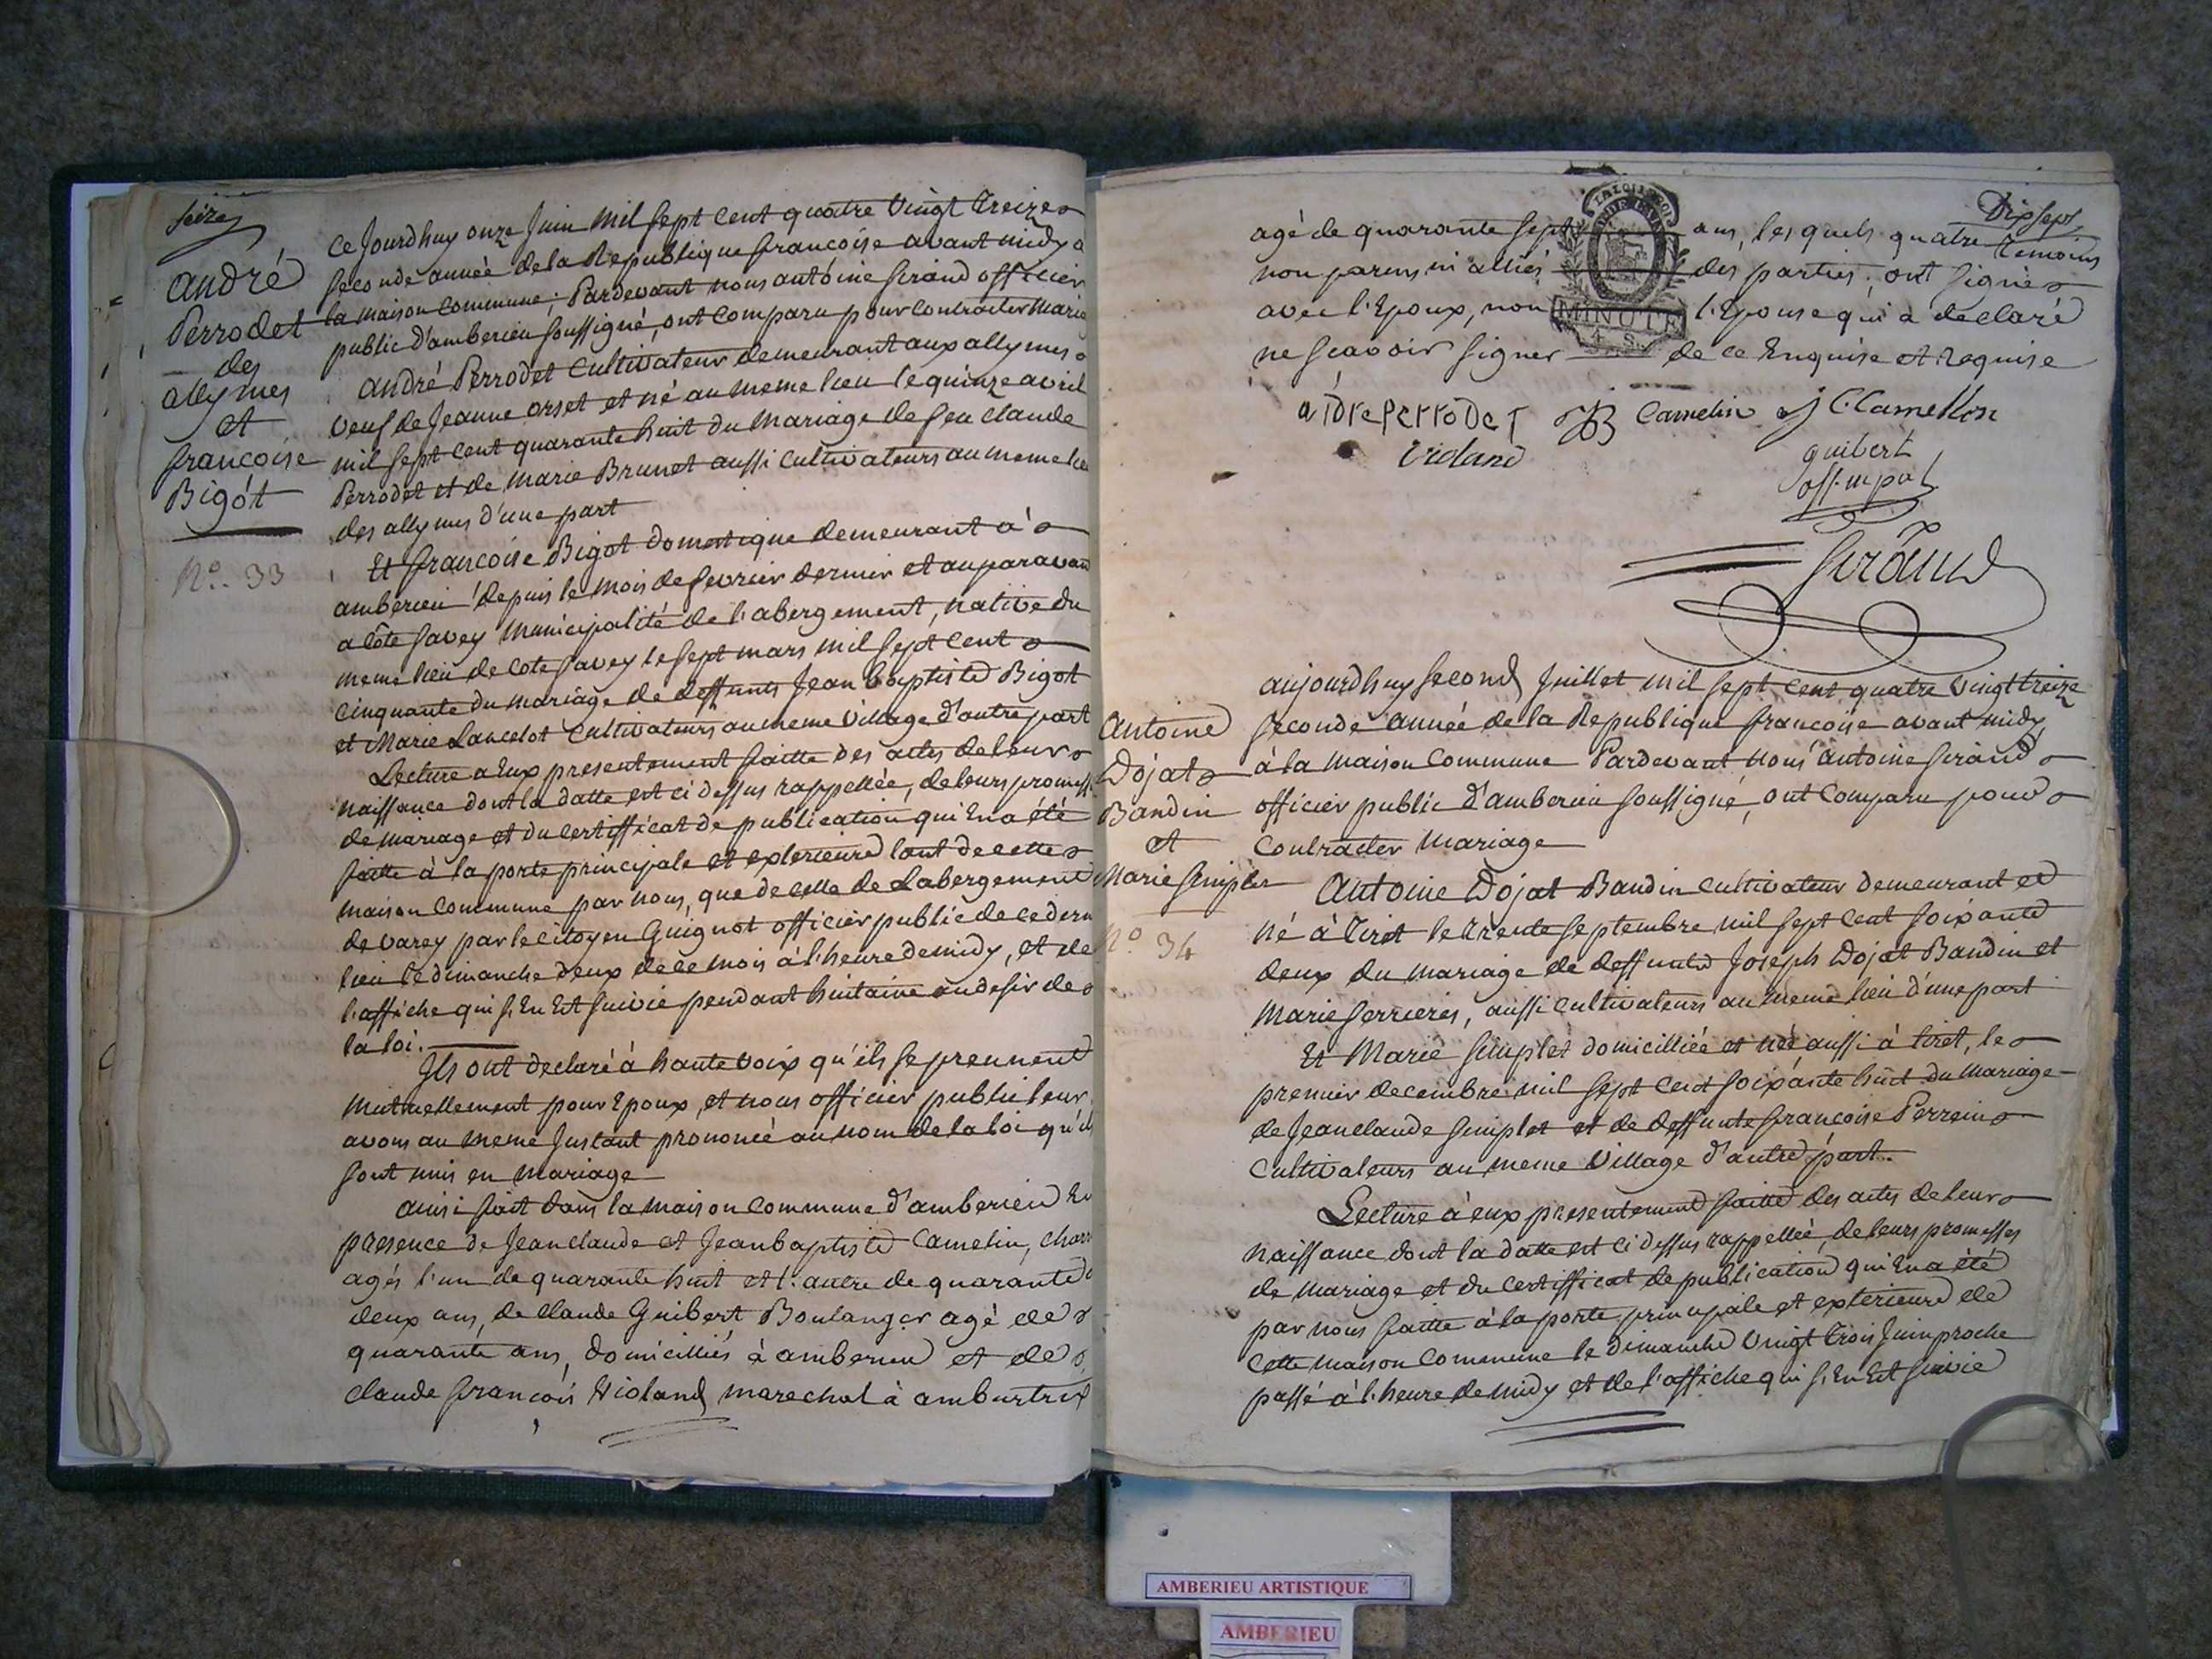 seize
andré
Perrodet
des
allymes
et
francoise
Bigot
N.o 33
Ce Jourdhuy onze Juin mil sept cent quatre vingt treize
seconde année de la Republique francoise avant midy à
la maison commune; Pardevant nous antoine Girâud officier
public d'amberieu soussigné, ont comparu pour contracter mariage
andré Perrodet cultivateur demeurant aux allymes
veuf de Jeanne orset et né au meme lieu le quinze avril
mil sept cent quarante huit du mariage de feu claude
Perrodet et de marie Brunet aussi cultivateurs au meme lieu
des allymes d'une part
Et francoise Bigot domestique demeurant a
amberieu depuis le mois de fevrier dernier et auparavant
a côte savey municipalité de l'abergement, native du
meme lieu de cote savey le sept mars mil sept cent
cinquante du mariage de deffunts Jean baptiste Bigot
et Marie Lancelot cultivateurs au meme village d'autre part
Lecture a Eux presentement faitte des actes de leur
naissance dont la datte est ci dessus rappellée, de leurs promesses
de mariage et du certifficat de publication qui En a été
faitte à la porte principale et exterieure tant de cette
maison commune par nous, que de celle de Labergement
de varey par le citoyen Guignot officier public de ce dern
lieu le dimanche deux de ce mois à l'heure de midy, et de
l'affiche qui s'En Est suivie pendant huitaine au desir de
la loi.
Ils ont declaré à haute voix qu'ils se prennent
mutuellement pour Epoux, et nous officier public leur
avons au meme Instant prononcé au nom de la loi qu'ils
sont unis en mariage
ainsi fait dans la maison commune d'amberieu En
presence de Jean claude et Jean baptiste Camelin, charr
agés l'un de quarante huit et l'autre de quarante
deux ans, de claude Guibert Boulanger agé de
quarante ans, domicilliés à amberieu et de
claude francois Violand marechal à amburtrix
Dix sept
agé de quarante sept ans, les quels quatre temoins
non parens ni alliés des parties, ont signés
avec l'Epoux, non l'Epouse qui a declaré
ne scavoir signer de ce Enquise et Requise
MINUTE
4 S.
aidre Perrodet JB Camelin J C Camelin
violand
guibert
off. mpal
Girâud
Antoine
Dojat
Bandin
et
Marie Simplet
N.o 34
aujourdhuy second Juillet mil sept cent quatre vingt treize
seconde année de la Republique francoise avant midy,
à la maison commune Pardevant nous antoine Girâud
officier public d'amberieu soussigné, ont comparu pour
contracter mariage
Antoine Dojat Bandin cultivateur demeurant et
né à Tiret le trente septembre mil sept cent soixante
deux du mariage de deffunts Joseph Dojat Bandin et
Marie ferrieres, aussi cultivateurs au meme lieu d'une part
Et Marie Simplet domicilliée et née aussi à tiret, le
premier decembre mil sept cent soixante huit du mariage
de Jean claude Simplet et de deffunte francoise Perrein
cultivateurs au meme village d'autre part.
Lecture à eux presentement faitte des actes de leur
naissance dont la datte est ci dessus rappellée, de leurs promesses
de mariage et du certifficat de publication qui En a été
par nous faitte à la porte principale et exterieure de
Cette maison commune le dimanche vingt trois Juin proche
passé à l'heure de midy et de l'affiche qui s'En Est suivie
AMBERIEU ARTISTIQUE
AMBERIEU